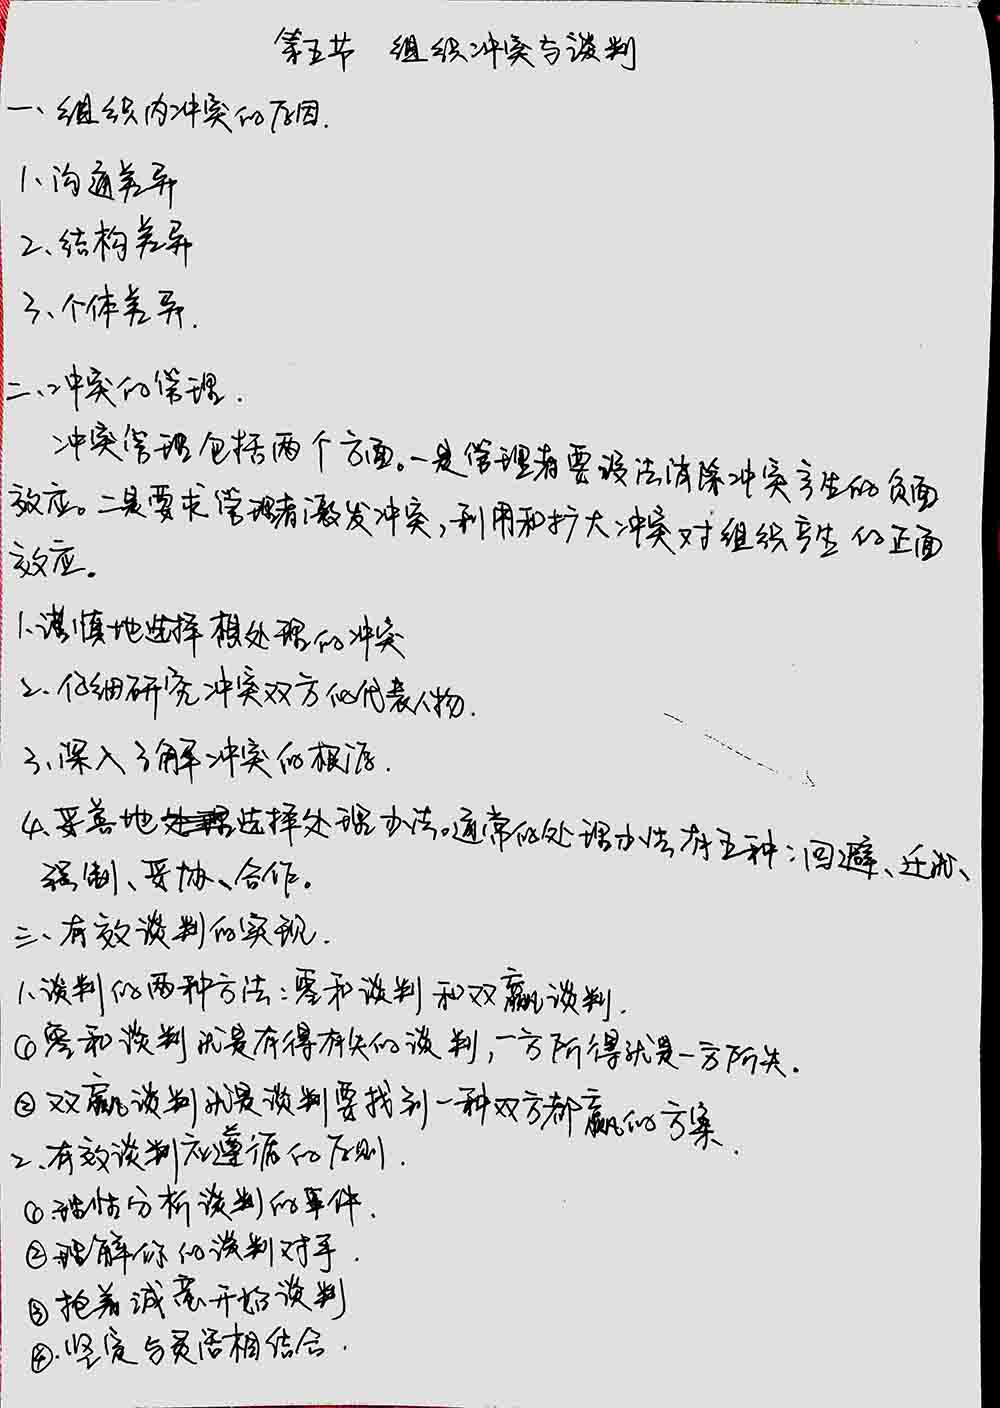 第五节 组织冲突与谈判
一、组织内冲突的原因.
1、沟通差异
2、结构差异
3、个体差异.
二、冲突的管理.
冲突管理包括两个方面。一是管理者要设法消除冲突产生的负面
效应。二是要求管理者激发冲突,利用和扩大冲突对组织产生的正面
效应。
1、谨慎地选择想处理的冲突
2、仔细研究冲突双方的代表人物.
3、深入了解冲突的根源.
4、妥善地选择处理办法。通常的处理办法有五种:回避、迁就、
强制、妥协、合作。
三、有效谈判的实现.
1、谈判的两种方法:零和谈判和双赢谈判.
①零和谈判就是有得有失的谈判,一方所得就是一方所失.
②双赢谈判就是谈判要找到一种双方都赢的方案.
2、有效谈判应遵循的原则.
①理性分析谈判的事件.
②理解你的谈判对手.
③抱着诚意开始谈判
④.坚定与灵活相结合.